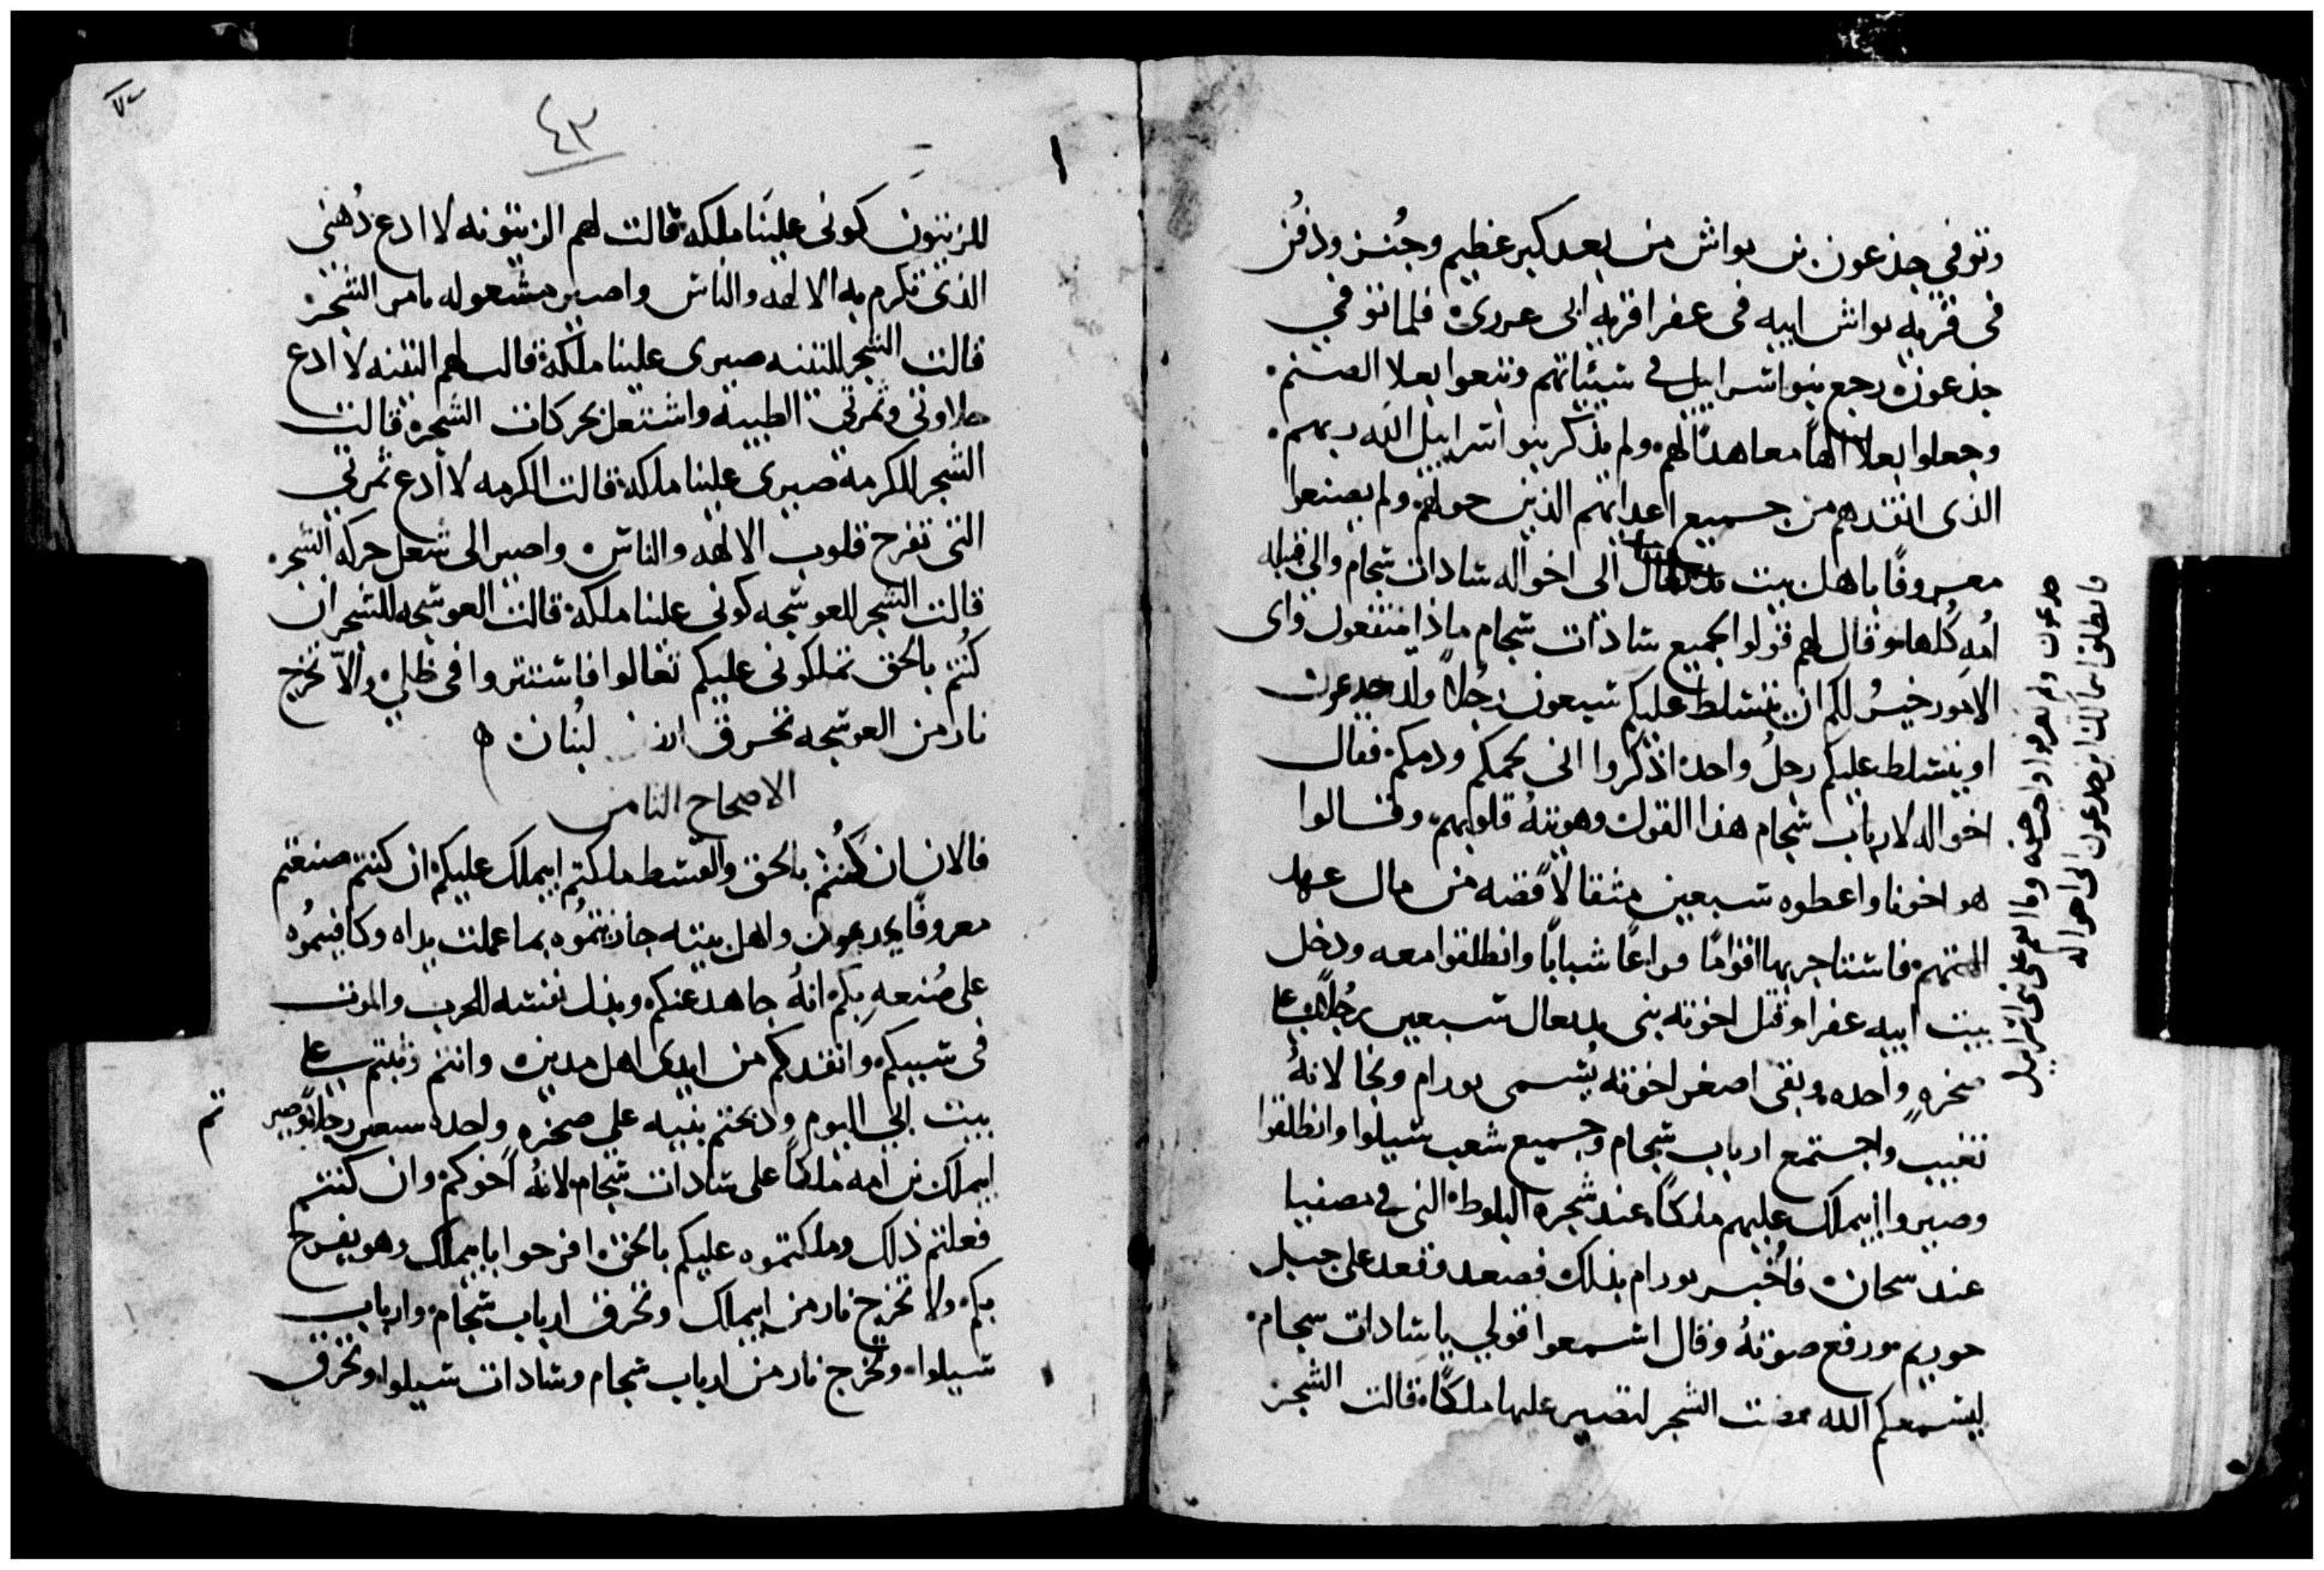 وتوفي جذعون بن يواش من بعد كبر عظيم وجُنز ودُفن
في قريه يواش ابيه في عفرا قريه ابي عزري فلما توفي
جذعون رجع بنو اسراييل في سيياتهم وتبعوا بعلا الصنم
وجعلوا بعلا الهاً معاهداً لهم ولم يذكر بنو اسراييل الله ربهم
الذي انقذهم من جميع اعدايهم الذين حولهم ولم يصنعوا
معروفًا باهل بيت الى اخواله سادات سجام والي قبيله
اُمه كُلها وقال لهم قولوا لجميع سادات سجام ماذا منتفعون واي
الامور خيرُ لكم ان يتسلط عليكم سبعون رجُلاً ولد جدعون
او يتسلط عليكم رجلُ واحد اذكروا اني لحمكم ودمكم فقال
اخواله لارباب سجام هذا القول وهويتهُ قلوبهم وقالوا
هو اخونا واعطوه سبعين مثقالاً فضه من مال عهد
الصنم فاستاجر بها اقوامًا فراغًا شبابًا وانطلقوا معه ودخل
بيت ابيه عفرا وقتل اخوته بني يدبعال سبعين رجُلاً علي
صخرهٍ واحده وبقي اصغر اخوته يُسمى يورام ونجا لانهُ
تغيب واجتمع ارباب سجام وجميع شعب سيلوا وانطلقوا
وصيروا ابيملك عليهم ملكاً عند شجره البلوط التي في مصفيا
عند سحام فاُخبر يورام بذلك فصعد فقعد على جبل
حوريم ورفع صوتهُ وقال اسمعوا قولي يا سادات سجام
ليسمعكم الله مضت الشجر لتصير عليها ملكاً قالت الشجر
جدعون ولم يعرفوا وما ابو على بني اسراييل
فانطلق ابيملك ابن جدعون الى اخواله
٤٣
للزيتون كوني علينا ملكه قالت لهم الزيتونه لا ادع دُهني
الذي تكرم به الالهه والناس واصير مشعوله بامر الشجر
قالت الشجر للتينه صيري علينا ملكة قالت لهم التينه لا ادع
حلاوتي وثمرتي الطيبه واشتعل بحركات الشجره قالت
الشجر للكرمه صيري علينا ملكة قالت الكرمه لا أدع ثمرتي
التي تفرح قلوب الالهه والناس واصير الى شعل حركه الشجره
قالت الشجر للعوسجه كوني علينا ملكة قالت العوسجه للشجر ان
كُنتم بالحق تملكوني عليكم تعالوا فاستتروا في ظلي والاّ تخرج
نار من العوسجه تحرق ارز لبنان ه
الاصحاح الثامن
فالان ان كُنتم بالحق والقسط ملكتم ابيملك عليكم ان كنتم صنعتم
معروفًا بجدعون واهل بيته جازيتمُوه بما عملت يداه وكافيتمُوه
على صُنعه بكم انهُ جاهد عنكم وبذل نفسه للحرب والموت
في سببكم وانقذكم من ايدي اهل مدين وانتم وثبتم علي
بيت ابي اليوم وذبحتم بنيه علي صخره واحده سبعين رجلاً وصير
ابيملك بن امه ملكاً على سادات سجام لانهُ اخوكم وان كنتم
فعلتم ذلك وملكتموه عليكم بالحق افرحوا بابيملك وهو يفرح
بكم والا تخرج نار من ابيملك وتحرق ارباب سجام وارباب
سيلوا وتخرج نار من ارباب سجام وسادات سيلوا وتحرق